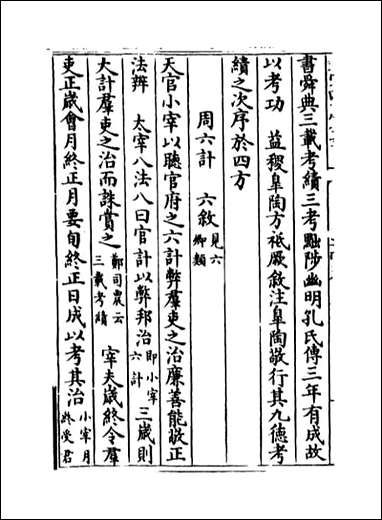 書舜典三載考績三考黜陟幽明孔氏傳三年有成故
以考功　益稷皐陶方祗厥敘注皐陶敬行其九德考
績之次序於四方
周六計　六敘見六卿類
天官小宰以聽官府之六計弊羣吏之治廉善能敬正
法辨　太宰八法八曰官計以弊邦治即小宰六計　三歲則
大計羣吏之治而誅賞之鄭司農云三載考績　宰夫歲終令羣
吏正歲會月終正月要旬終正日成以考其治小宰月終受君